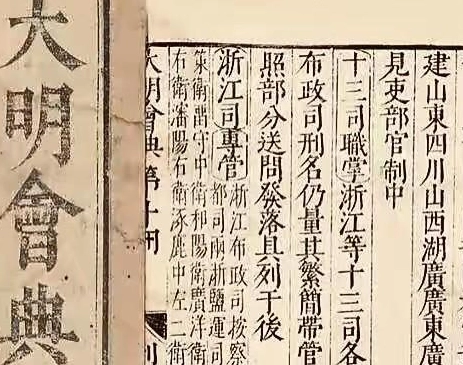 建山東四川山西湖廣廣東廣
見吏部官制中
十三司職掌浙江等十三司各
布政司刑名仍量其繁簡帶管
照部分送問發落具列于後
浙江司專管
浙江布政司按察
都司兩浙鹽運司
策衛留守中衛和陽衛廣洋衛
右衛瀋陽右衛涿鹿中左二衛
大明會典第十冊
大明會典